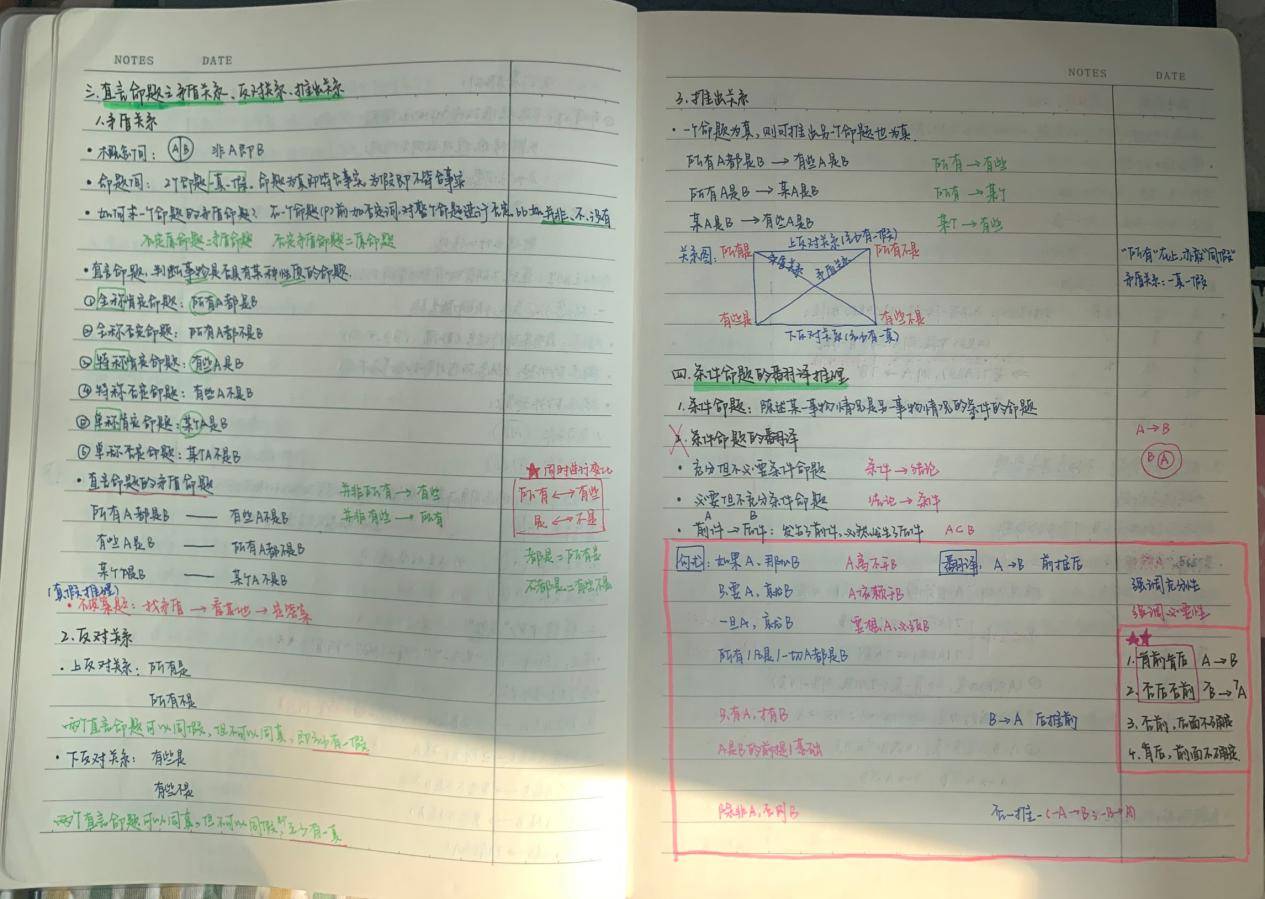 NOTES DATE
三.直言命题之矛盾关系、反对关系、推出关系
1.矛盾关系
·概念间: A B 非A即B
·命题间: 2个命题一真一假,命题为真即符合事实,为假即不符合事实
·如何求一个命题的矛盾命题? 在一个命题(P)前加否定词,对整个命题进行否定,比如并非、不、没有
否定原命题=矛盾命题 否定矛盾命题=原命题
·直言命题,判断事物是否具有某种性质的命题.
①全称肯定命题: 所有A都是B
②全称否定命题: 所有A都不是B
③特称肯定命题: 有些A是B
④特称否定命题: 有些A不是B
⑤单称肯定命题: 某个A是B
⑥单称否定命题: 某个A不是B
★同时进行变化
·直言命题的矛盾命题 并非所有→有些
所有⟷有些
所有A都是B —— 有些A不是B 并非有些→所有
是⟷不是
有些A是B —— 所有A都不是B
都是=所有是
某个A是B —— 某个A不是B
不都是=有些不是
(真假推理)
·不破案题: 找矛盾→看其他→定答案
2.反对关系
·上反对关系: 所有是
所有不是
两个直言命题可以同假,但不可以同真,即至少有一假
·下反对关系: 有些是
有些不是
两个直言命题可以同真,但不可以同假,至少有一真
NOTES DATE
3.推出关系
·一个命题为真,则可推出另一个命题也为真
所有A都是B→有些A是B 所有→有些
所有A是B→某A是B 所有→某个
某A是B→有些A是B 某个→有些
上反对关系(至少有一假)
关系图: 所有是 所有不是
矛盾关系 矛盾关系
"所有"在上,亦敢"同假"
矛盾关系:一真一假
有些是 有些不是
下反对关系(至少有一真)
四.条件命题的翻译推理
1.条件命题: 陈述某一事物情况是另一事物情况的条件的命题
2.条件命题的翻译
A→B
B A
·充分但不必要条件命题 条件→结论
·必要但不充分条件命题 结论→条件
A B
·前件→后件: 发生了前件,必然发生了后件 A⊂B
句式: 如果A,那么B A离不开B 翻译: A→B 前推后
只要A,就B A依赖于B
强调充分性
一旦A,就B 要想A,必须B
强调必要性
所有/凡是/一切A都是B
★★
1.肯前肯后 A→B
2.否后否前 ¬B→¬A
只有A,才有B B→A 后推前
3.否前,后面不确定
A是B的前提/基础
4.肯后,前面不确定
除非A,否则B 否一推一(-A→B;-B→A)